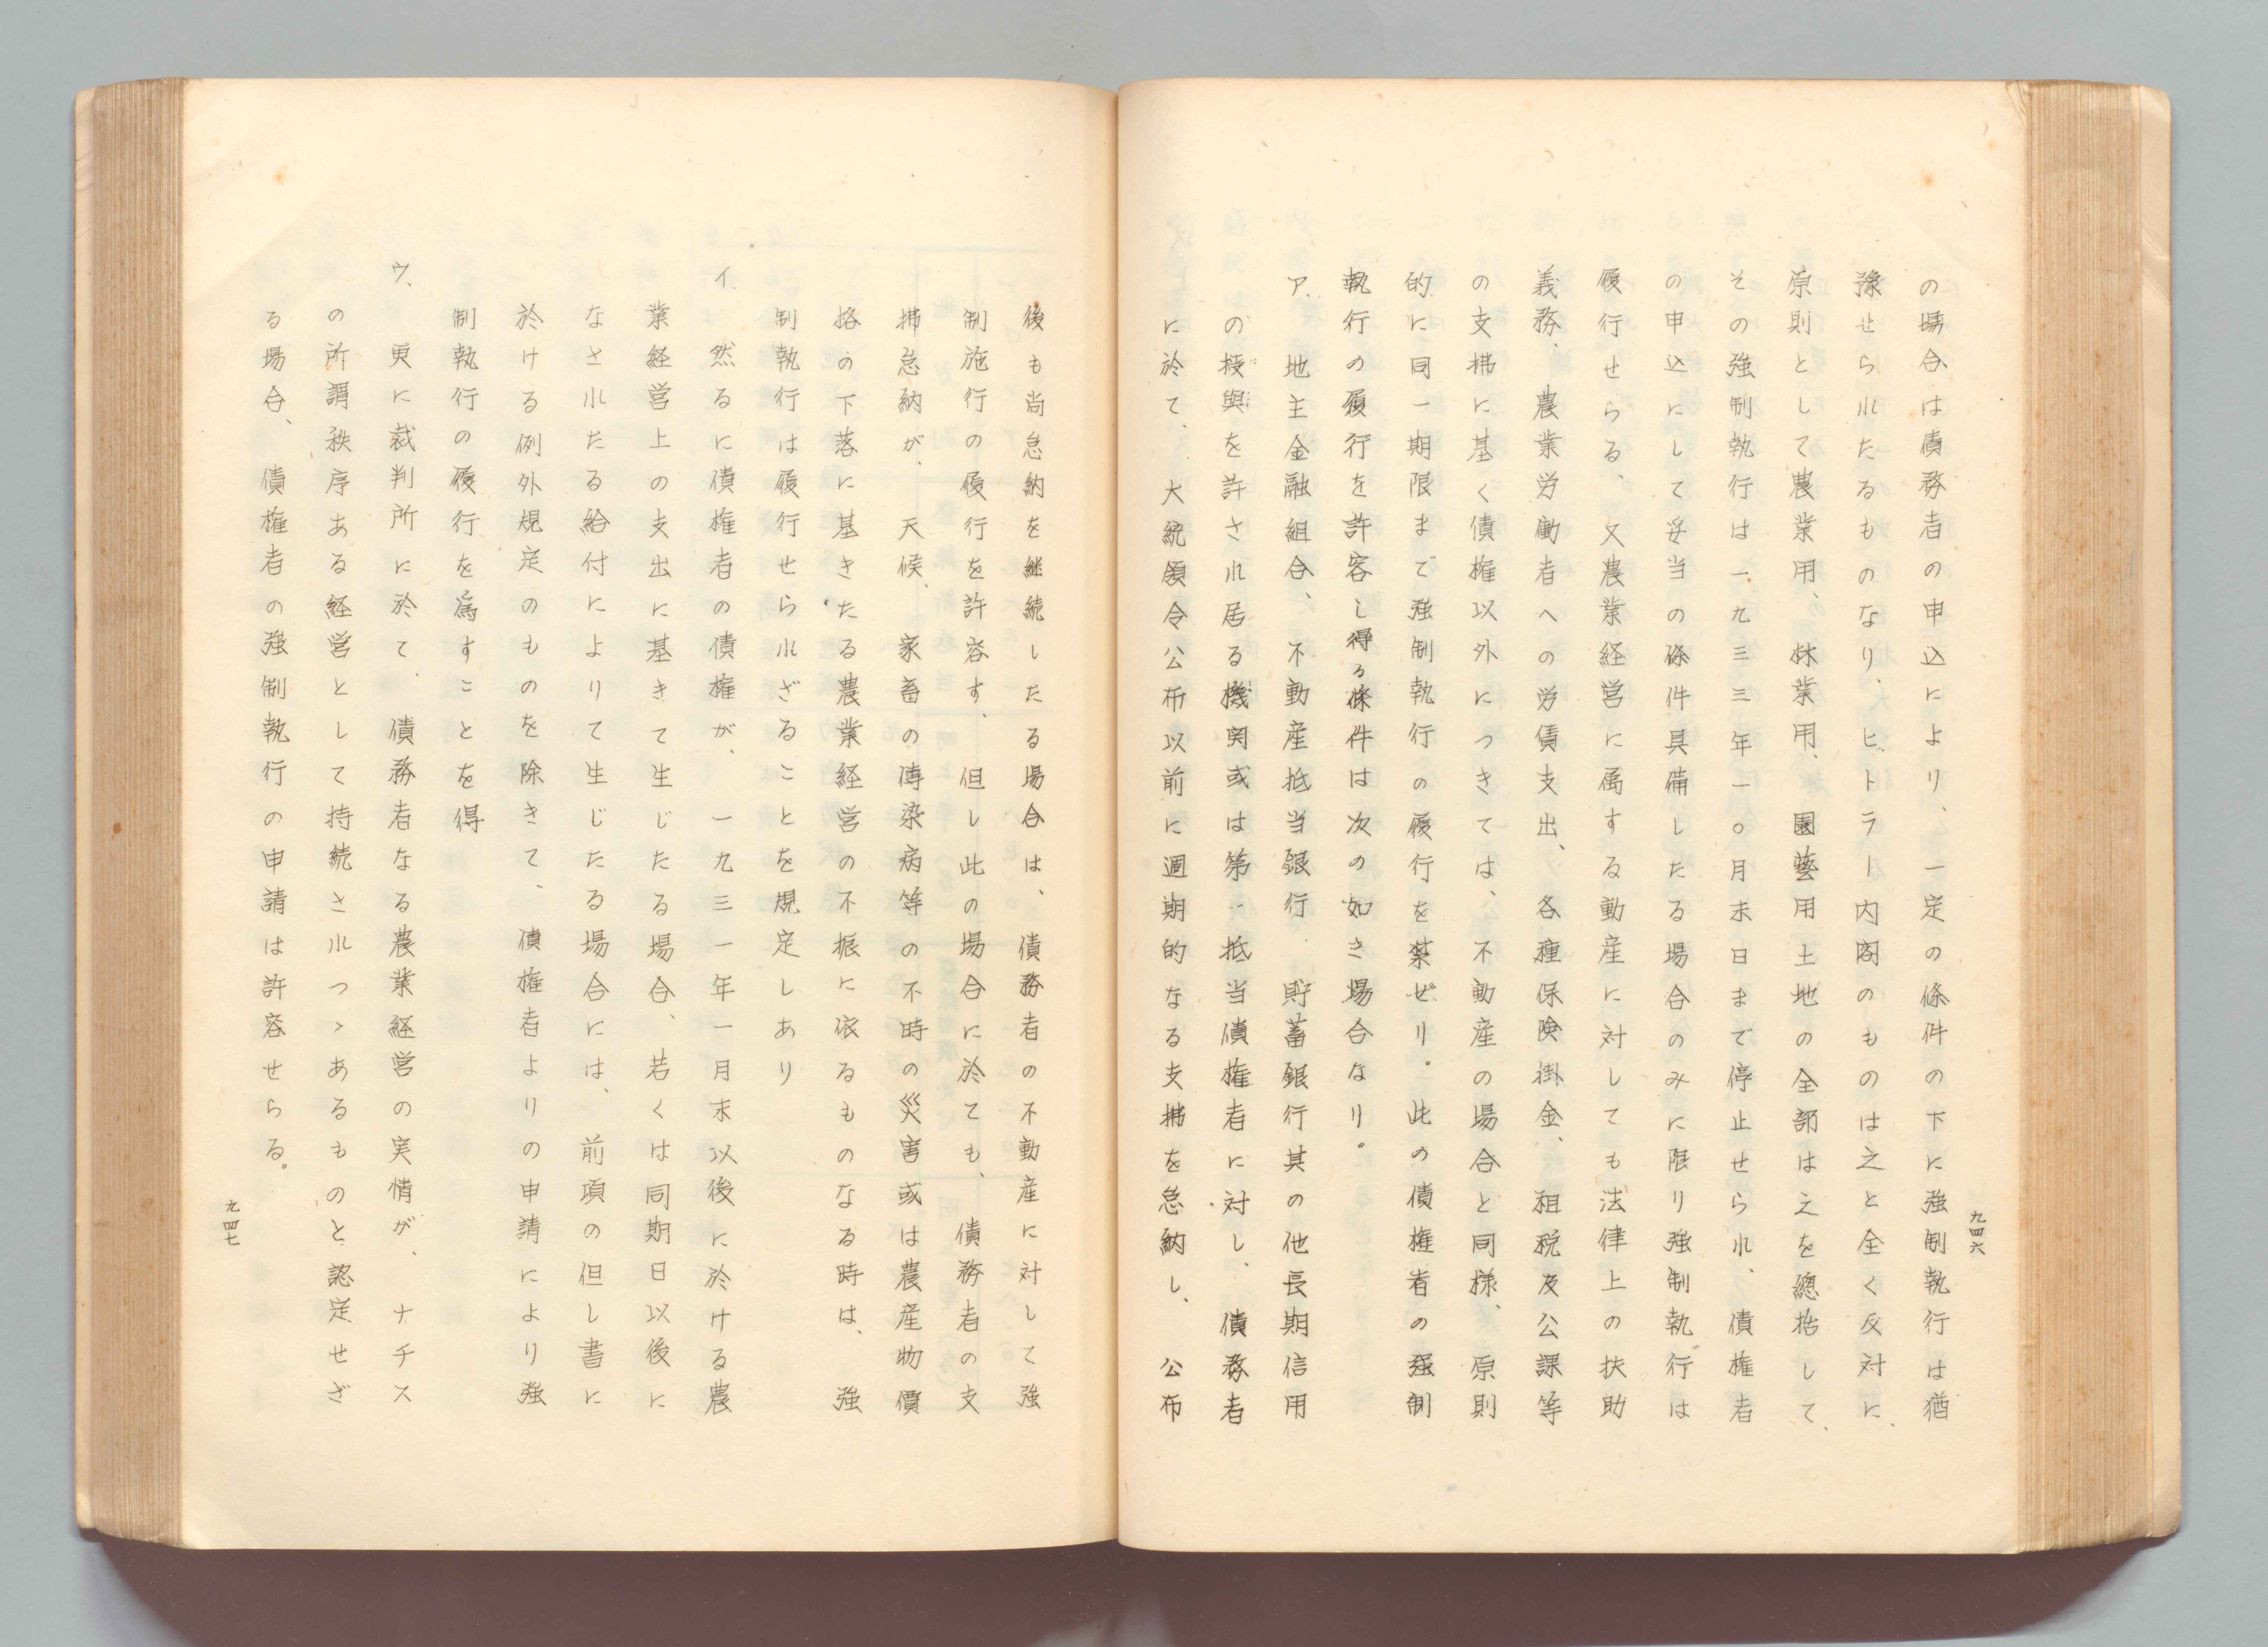 九四六
の場合は債務者の申込により、一定の條件の下に強制執行は猶
豫せられたるものなり、ヒトラー内閣のものは之と全く反対に、
原則として農業用、林業用、園藝用土地の全部は之を總括して、
その強制執行は一九三三年一〇月末日まで停止せられ、債権者
の申込にして妥当の條件具備したる場合のみに限り強制執行は
履行せらる、又農業経営に属する動産に対しても法律上の扶助
義務、農業労働者への労賃支出、各種保険掛金、租税及公課等
の支拂に基く債権以外につきては、不動産の場合と同様、原則
的に同一期限まで強制執行の履行を禁ぜり。此の債権者の強制
執行の履行を許容し得る條件は次の如き場合なり。
ア、地主金融組合、不動産抵当銀行、貯蓄銀行其の他長期信用
の授與を許され居る機関或は第一抵当債権者に対し、債務者
に於て、大統領令公布以前に週期的なる支拂を怠納し、公布
後も尚怠納を継続したる場合は、債務者の不動産に対して強
制施行の履行を許容す、但し此の場合に於ても、債務者の支
拂怠納が、天候、家畜の傳染病等の不時の災害或は農産物價
格の下落に基きたる農業経営の不振に依るものなる時は、強
制執行は履行せられざることを規定しあり
イ、然るに債権者の債権が、一九三一年一月末以後に於ける農
業経営上の支出に基きて生じたる場合、若くは同期日以後に
なされたる給付によりて生じたる場合には、前項の但し書に
於ける例外規定のものを除きて、債権者よりの申請により強
制執行の履行を為すことを得
ウ、更に裁判所に於て、債務者なる農業経営の実情が、ナチス
の所謂秩序ある経営として持続されつゝあるものと認定せざ
る場合、債権者の強制執行の申請は許容せらる。
九四七